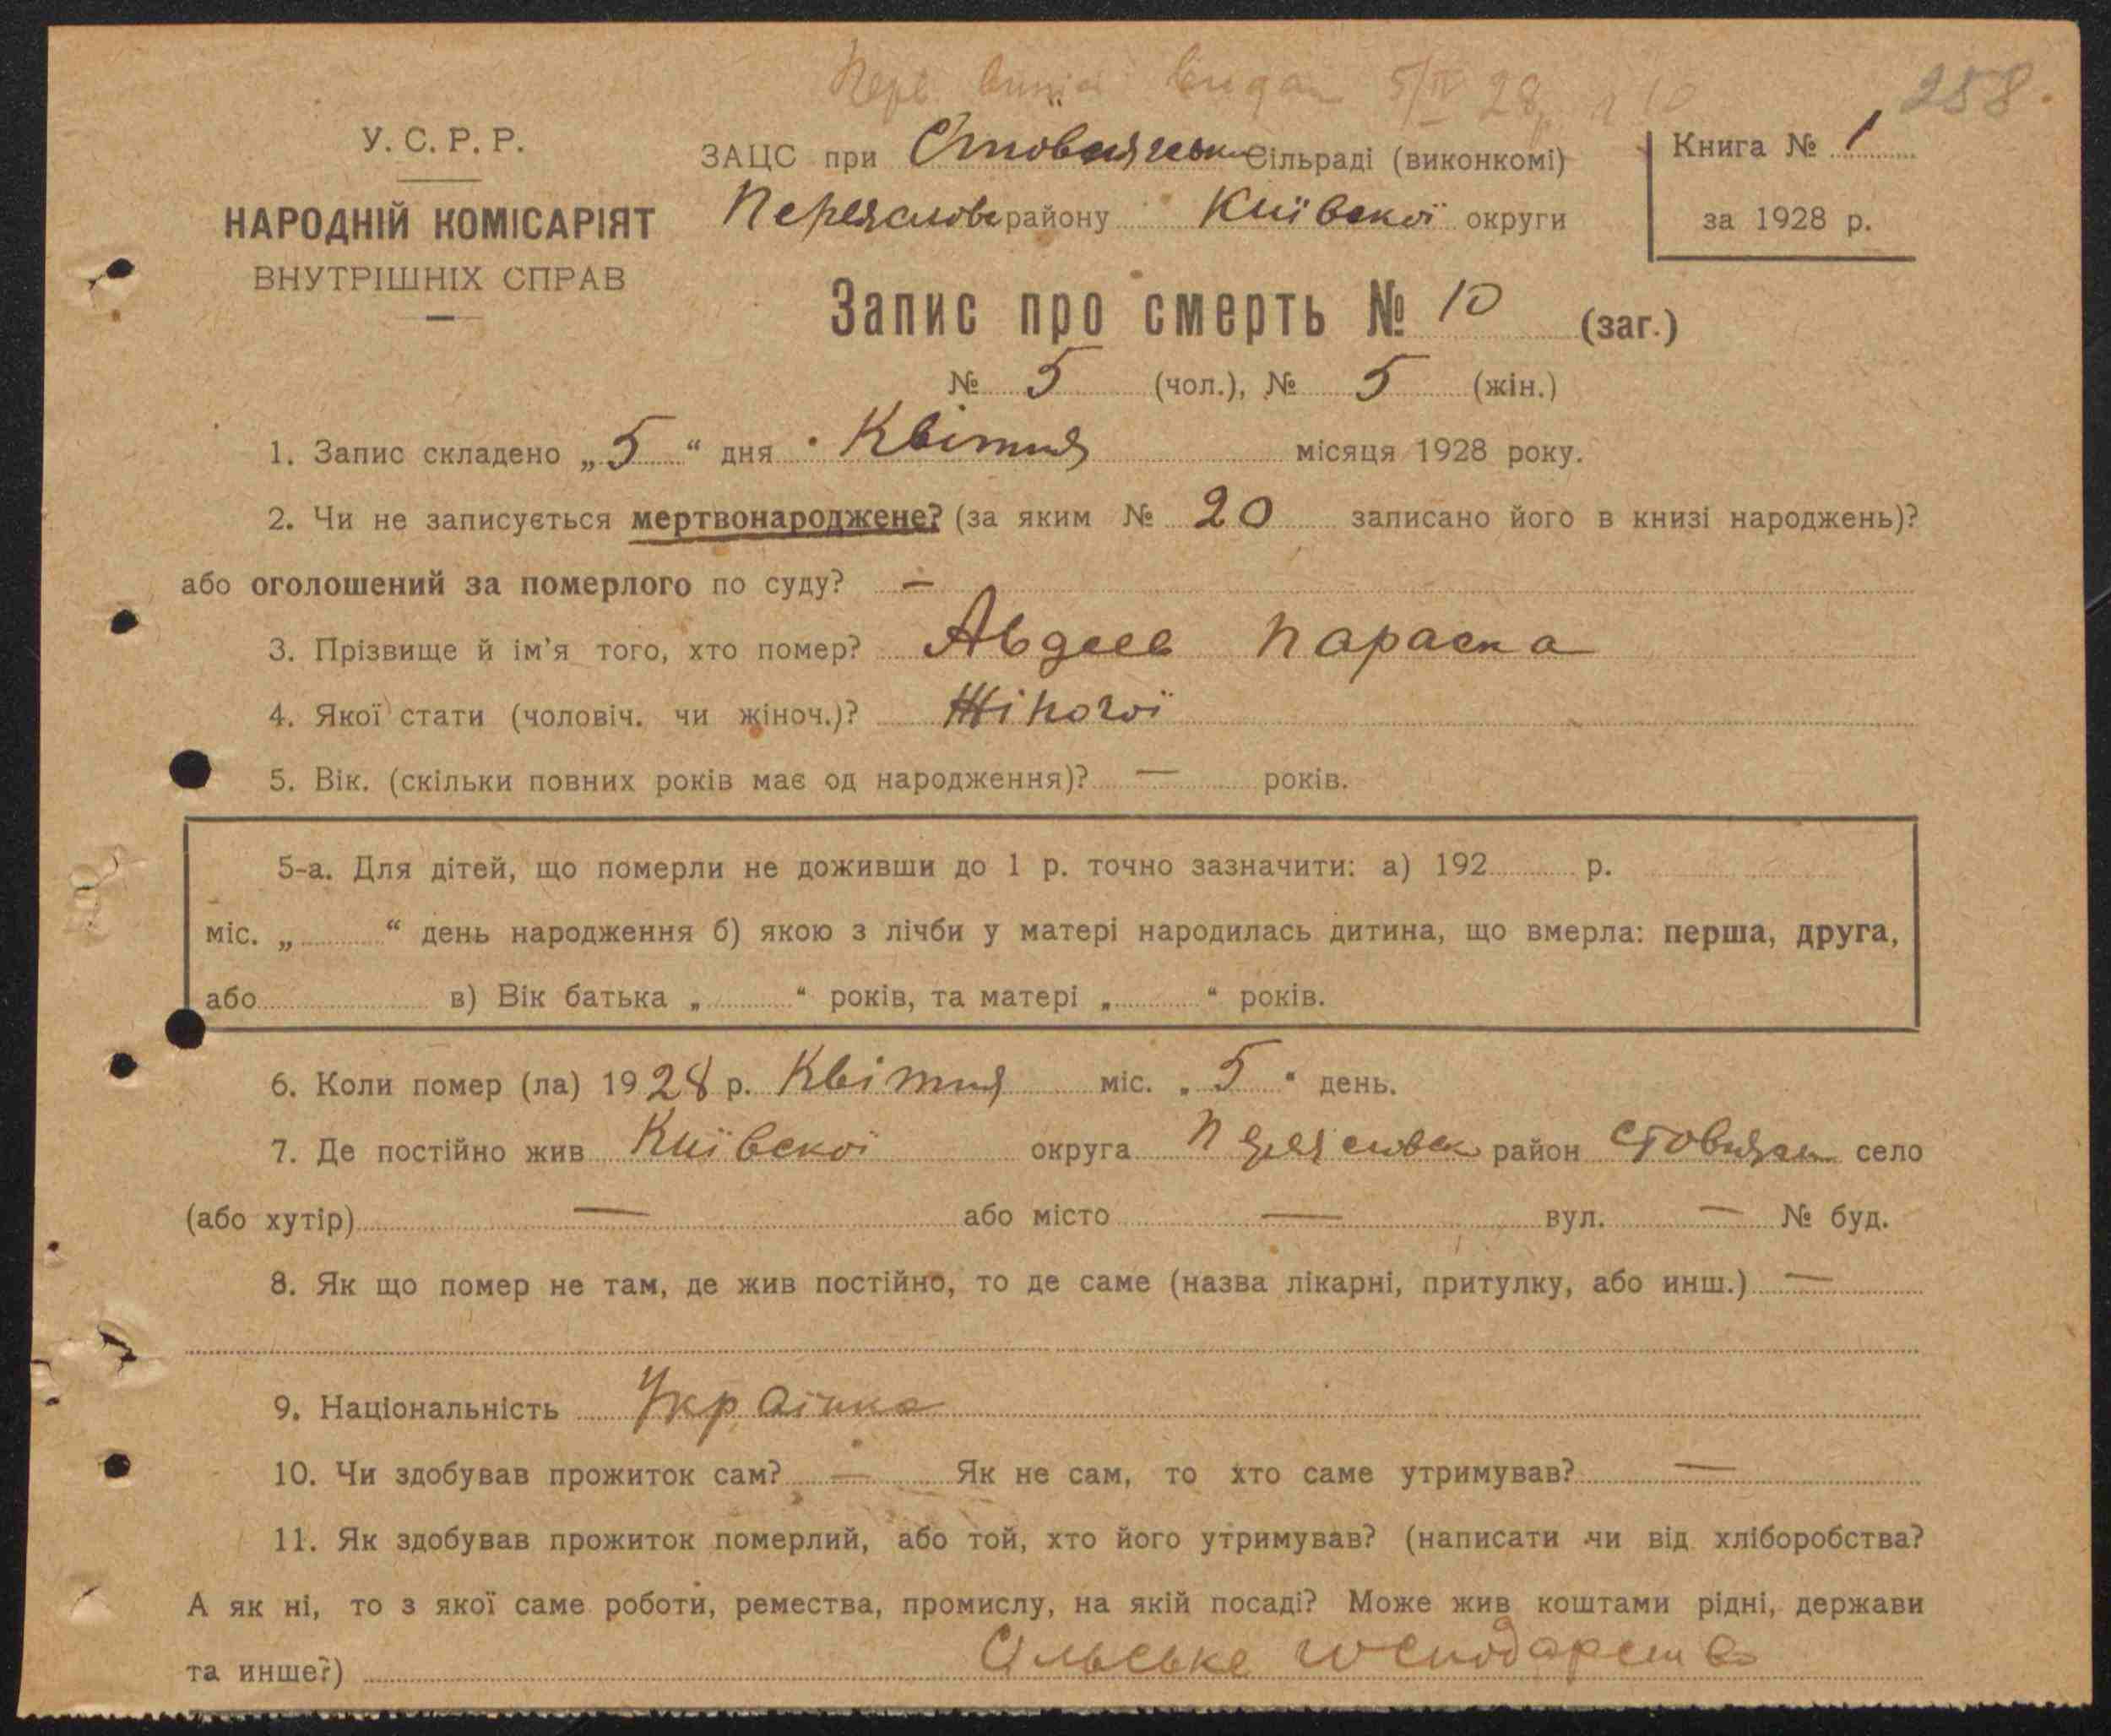 Перв. витяг видан 5/IV 28 р. № 10 258.
У. С. Р. Р.
НАРОДНІЙ КОМІСАРІЯТ
ВНУТРІШНІХ СПРАВ
ЗАЦС при Стовпязьк Сільраді (виконкомі)
Переяслове району Київскої округи
Книга № 1
за 1928 р.
Запис про смерть № 10 (заг.)
№ 5 (чол.), № 5 (жін.)
1. Запис складено „5“ дня Квітня місяця 1928 року.
2. Чи не записується мертвонароджене? (за яким № 20 записано його в книзі народжень)?
або оголошений за померлого по суду? —
3. Прізвище й ім'я того, хто помер? Авдеев Параска
4. Якої стати (чоловіч. чи жіноч.)? Жіночої
5. Вік. (скільки повних років має од народження)? — років.
5-а. Для дітей, що померли не доживши до 1 р. точно зазначити: а) 192 р.
міс. „ “ день народження б) якою з лічби у матері народилась дитина, що вмерла: перша, друга,
або в) Вік батька „ “ років, та матері „ “ років.
6. Коли помер (ла) 1928 р. Квітня міс. „5“ день.
7. Де постійно жив Київскої округа Переяславск район Стовпяги село
(або хутір) — або місто — вул. — № буд.
8. Як що помер не там, де жив постійно, то де саме (назва лікарні, притулку, або инш.) —
9. Національність Українка
10. Чи здобував прожиток сам? — Як не сам, то хто саме утримував? —
11. Як здобував прожиток померлий, або той, хто його утримував? (написати чи від хліборобства?
А як ні, то з якої саме роботи, ремества, промислу, на якій посаді? Може жив коштами рідні, держави
та инше?) Сільське господарство